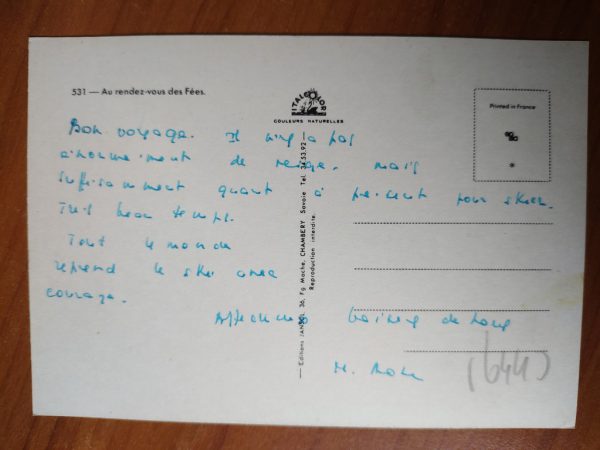 531 — Au rendez-vous des Fées.
ITALCOLOR
COULEURS NATURELLES
Printed in France
Bon voyage. Il n'y a pas
énormément de neige. mais
suffisamment quant à présent pour skier.
Très beau temps.
Tout le monde
reprend le ski avec
courage.
Affectueux baisers de tous
M.
(644)
— Editions JANSOL, 36, Fg Mache, CHAMBERY Savoie Tel. 34.53.92 —
Reproduction interdite.